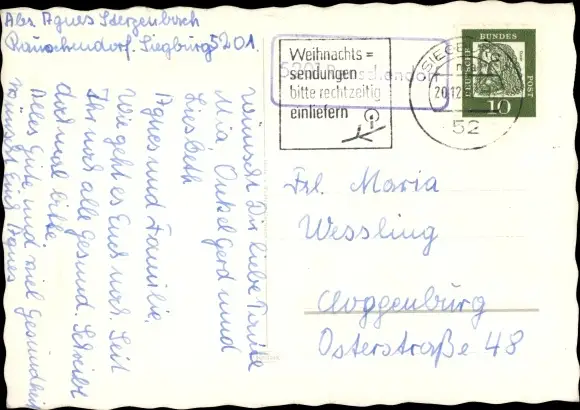 Abs. Agnes
Rauschendorf. Siegburg 5201.
Weihnachts=
sendungen
bitte rechtzeitig
einliefern
5201 Rauschendorf
SIEGBURG
20.12
52
DEUTSCHE
BUNDES
POST
10
wünscht Dir liebe Tante
Mia, Onkel Gerd und
Liesbeth
Agnes und Familie.
Wie geht es Euch noch. Seit
Ihr noch alle Gesund. Schreibt
doch mal bitte.
Alles Gute und viel Gesundheit
wünscht Euch Agnes
Frl. Maria
Wessling
Cloppenburg
Osterstraße 48